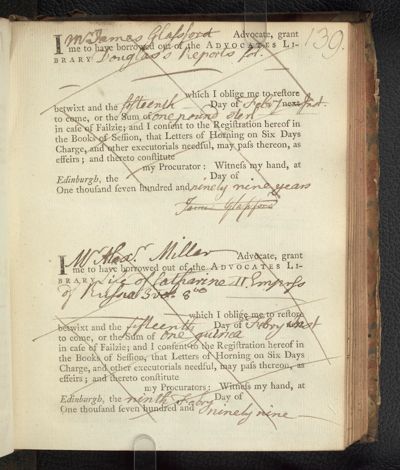 139.
I Mr James Glassford Advocate, grant
me to have borrowed out of the ADVOCATES LI-
BRARY Douglas's Reports fol.
which I oblige me to restore
betwixt and the fifteenth Day of Febry next
to come, or the Sum of one pound ster
in case of Failzie; and I consent to the Registration hereof in
the Books of Session, that Letters of Horning on Six Days
Charge, and other executorials needful, may pass thereon, as
effeirs; and thereto constitute
my Procurator: Witness my hand, at
Edinburgh, the Day of
One thousand seven hundred and ninety nine years
James Glassford
I Mr Alexr. Millar Advocate, grant
me to have borrowed out of the ADVOCATES LI-
BRARY Life of Catharine II Empress
of Russia 3 vol. 8vo
which I oblige me to restore
betwixt and the fifteenth Day of Febry next
to come, or the Sum of one guinea
in case of Failzie; and I consent to the Registration hereof in
the Books of Session, that Letters of Horning on Six Days
Charge, and other executorials needful, may pass thereon, as
effeirs; and thereto constitute
my Procurators: Witness my hand, at
Edinburgh, the ninth Febry Day of
One thousand seven hundred and ninety nine